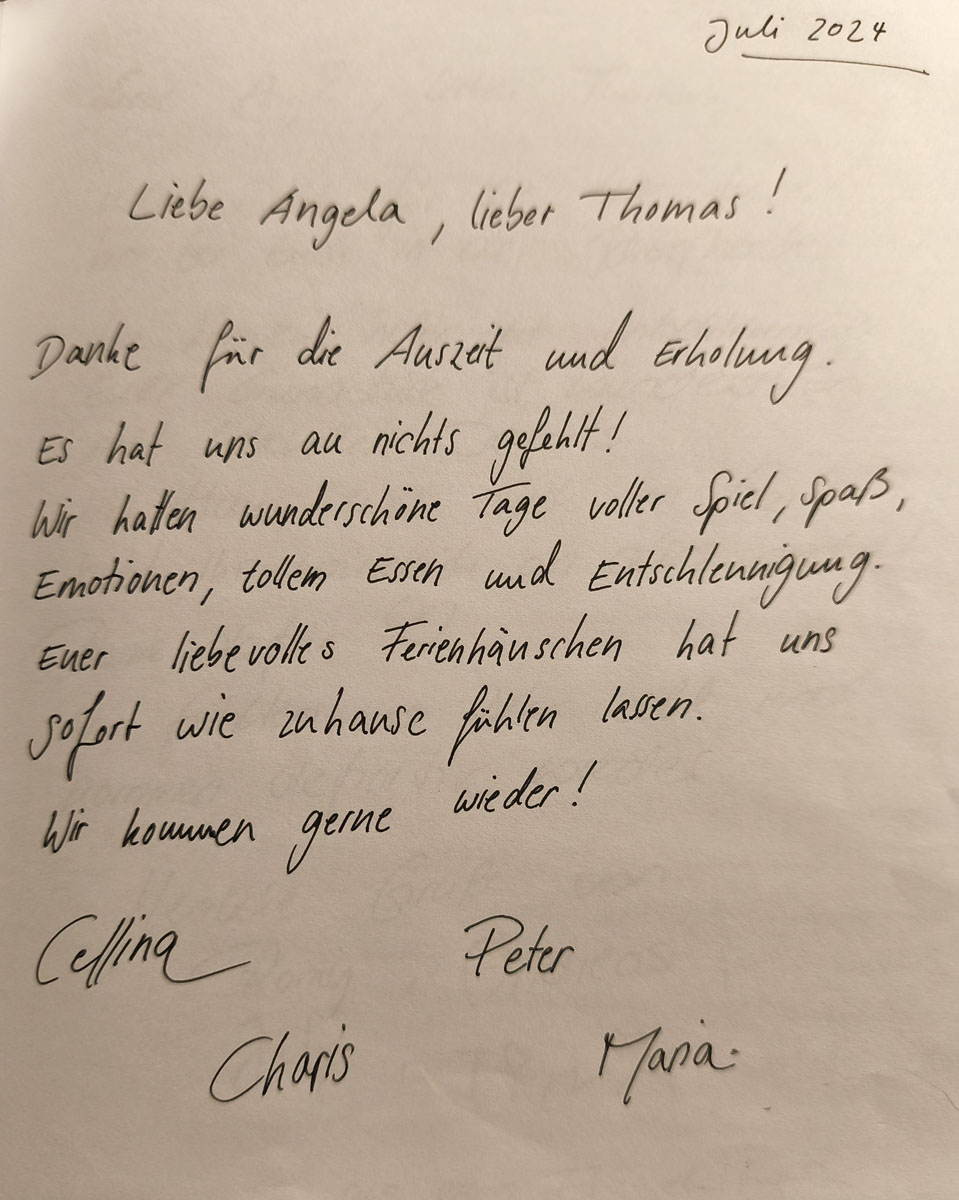 Juli 2024
Liebe Angela, lieber Thomas!
Danke für die Auszeit und Erholung.
Es hat uns an nichts gefehlt!
Wir hatten wunderschöne Tage voller Spiel, Spaß,
Emotionen, tollem Essen und Entschleunigung.
Euer liebevolles Ferienhäuschen hat uns
sofort wie zuhause fühlen lassen.
Wir kommen gerne wieder!
Cellina Peter
Charis Maria